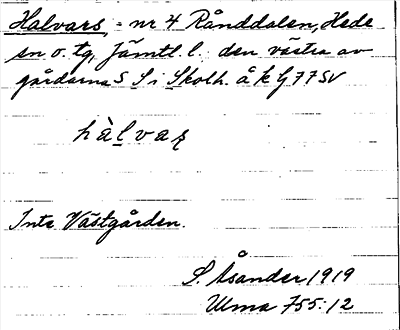 Halvars, = nr 4 Rånddalen, Hede
sn o. tg, Jämtl. l. den västra av
gårdarna S S i Skolh. å k G 77 SV
hàlvaʂ
Inte Västgården.
S. Åsander 1919
Ulma 755:12